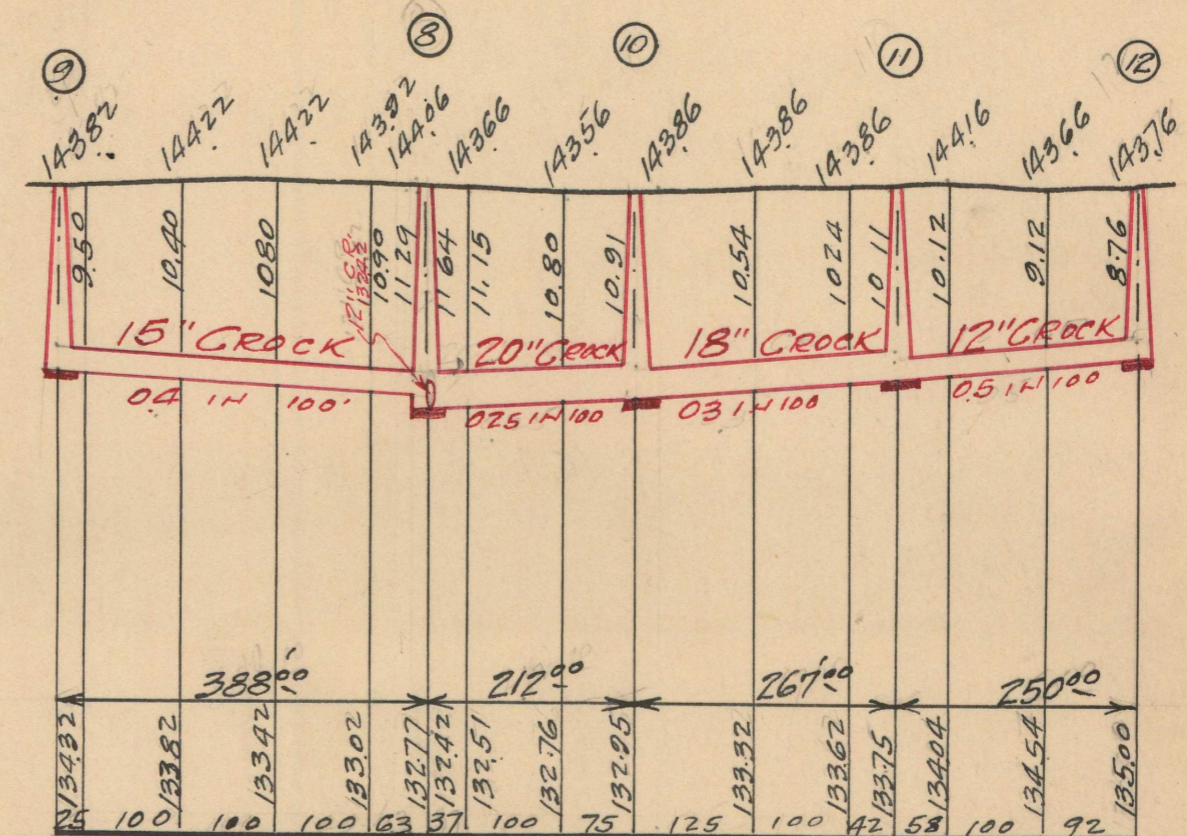 9 8 10 11 12
143.82 144.22 144.22 143.92 144.06 143.66 143.56 143.86 143.86 143.86 144.16 143.66 143.76
9.50 10.40 10.80 10.90 11.29 11.64 11.15 10.80 10.91 10.54 10.24 10.11 10.12 9.12 8.76
12" CR.
132.42
15" CROCK 20" CROCK 18" CROCK 12" CROCK
0.4 IN 100' 0.25 IN 100 0.3 IN 100 0.5 IN 100
388'00 212'00 267'00 250'00
134.32 133.82 133.42 133.02 132.77 132.42 132.51 132.76 132.95 133.32 133.62 133.75 134.04 134.54 135.00
25 100 100 100 63 37 100 75 125 100 42 58 100 92